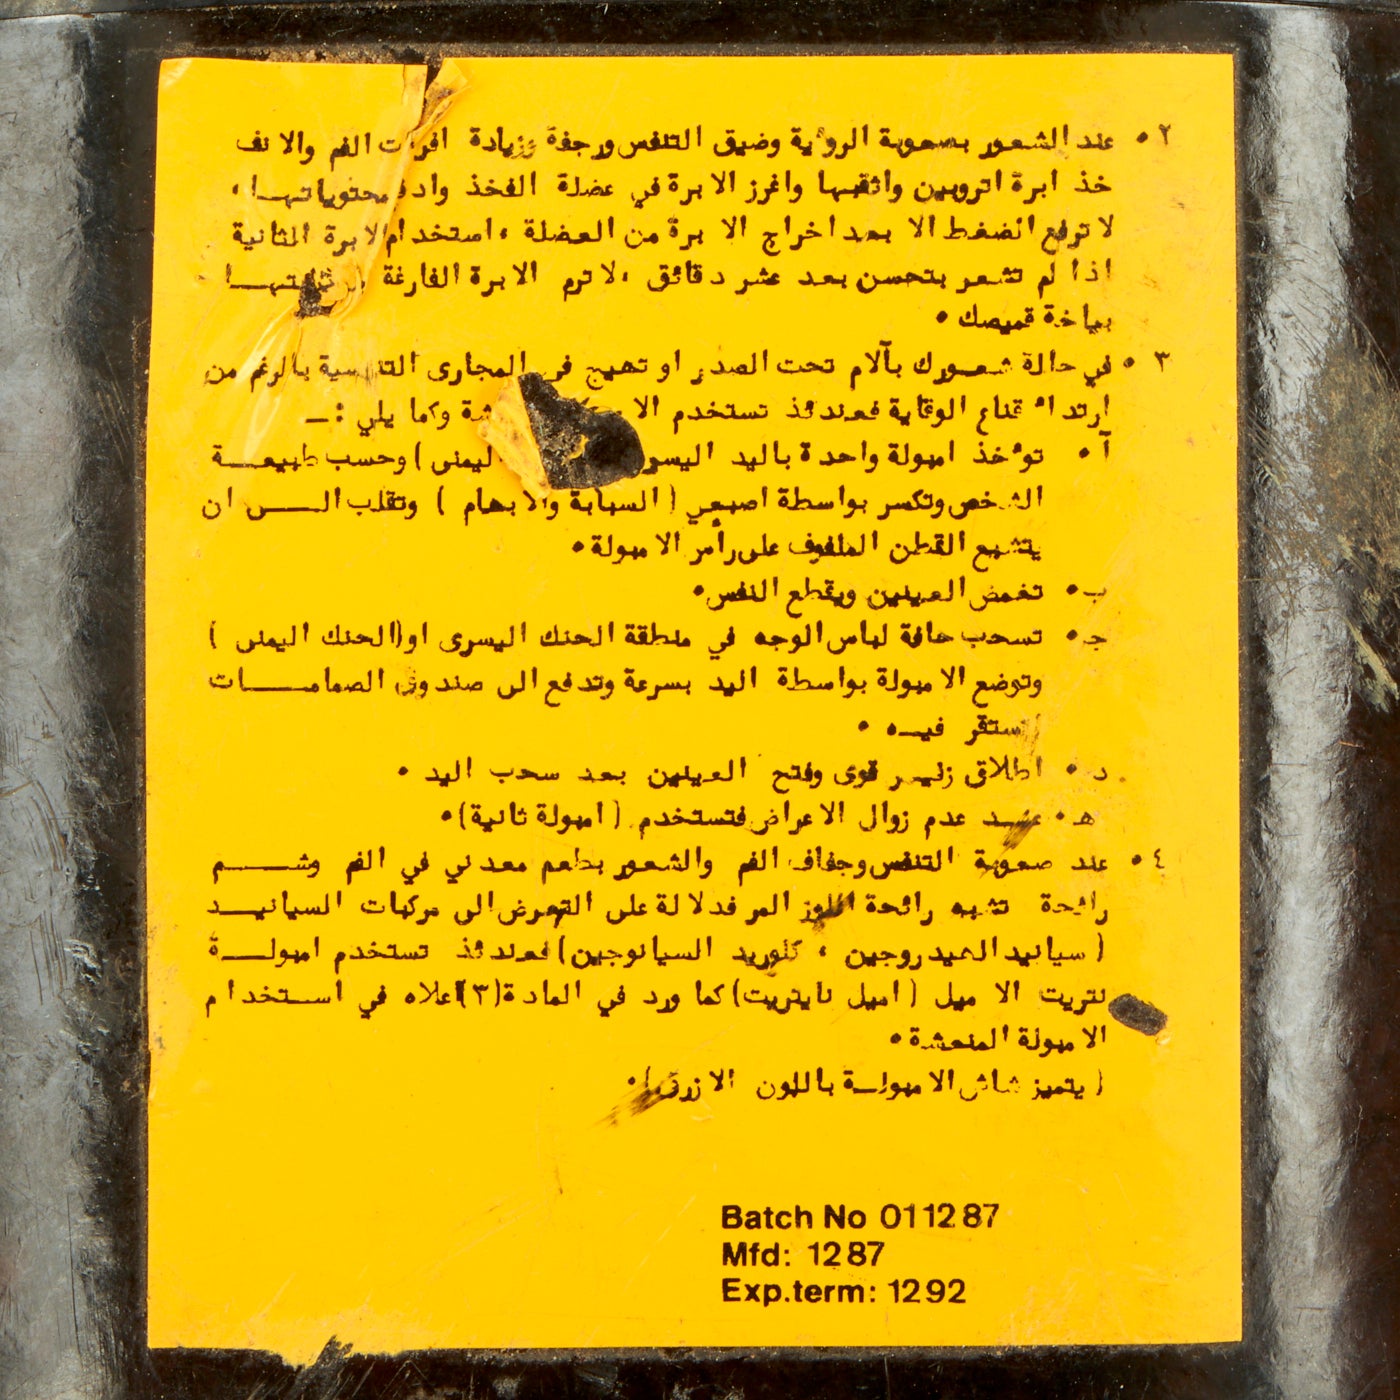 ٢ • عند الشعور بصعوبة الروءية وضيق التنفس ورجفة وزيادة افرزات الفم والانف
خذ ابرة اتروبين واثقبها واغرز الابرة في عضلة الفخذ وادفع محتوياتها •
لا ترفع الضغط الا بعد اخراج الابرة من العضلة ، استخدام الابرة الثانية
اذا لم تشعر بتحسن بعد عشر دقائق ، لا ترم الابرة الفارغة
بياخة قميصك •
٣ • في حالة شعورك بآلام تحت الصدر او تهيج في المجارى التنفسية بالرغم من
ارتداء قناع الوقاية فعندئذ تستخدم وكما يلي :ــ
آ • توءخذ امبولة واحدة باليد اليسرى اليمنى ) وحسب طبيعـــة
الشخص وتكسر بواسطة اصبعي ( السبابة والابهام ) وتقلب الــى ان
يتشبع القطن الملفوف على رأس الامبولة •
ب • تغمض العينين ويقطع النفس •
جـ • تسحب حافة لباس الوجه في منطقة الحنك اليسرى او(الحنك اليمنى )
وتوضع الامبولة بواسطة اليد بسرعة وتدفع الى صندوق الصمامـــات
لتستقر فيــه •
د • اطلاق زفيـر قوى وفتح العينين بعد سحب اليد •
هـ • عنـد عدم زوال الاعراض فتستخدم ( امبولة ثانية ) •
٤ • عند صعوبة التنفس وجفاف الفم والشعور بطعم معدني في الفم وشـــم
رائحة تشبه رائحة اللوز المر فدلالة على التعرض الى مركبات السيانيــد
( سيانيد الهيدروجين ، كلوريد السيانوجين ) فعندئذ تستخدم امبولـــة
نتريت الاميل ( اميل نايتريت ) كما ورد في المادة (٣) اعلاه في استـخدام
الامبولة المنعشة •
( يتميز شاش الامبولـة باللون الازرق ) •
Batch No 011287
Mfd: 1287
Exp.term: 1292